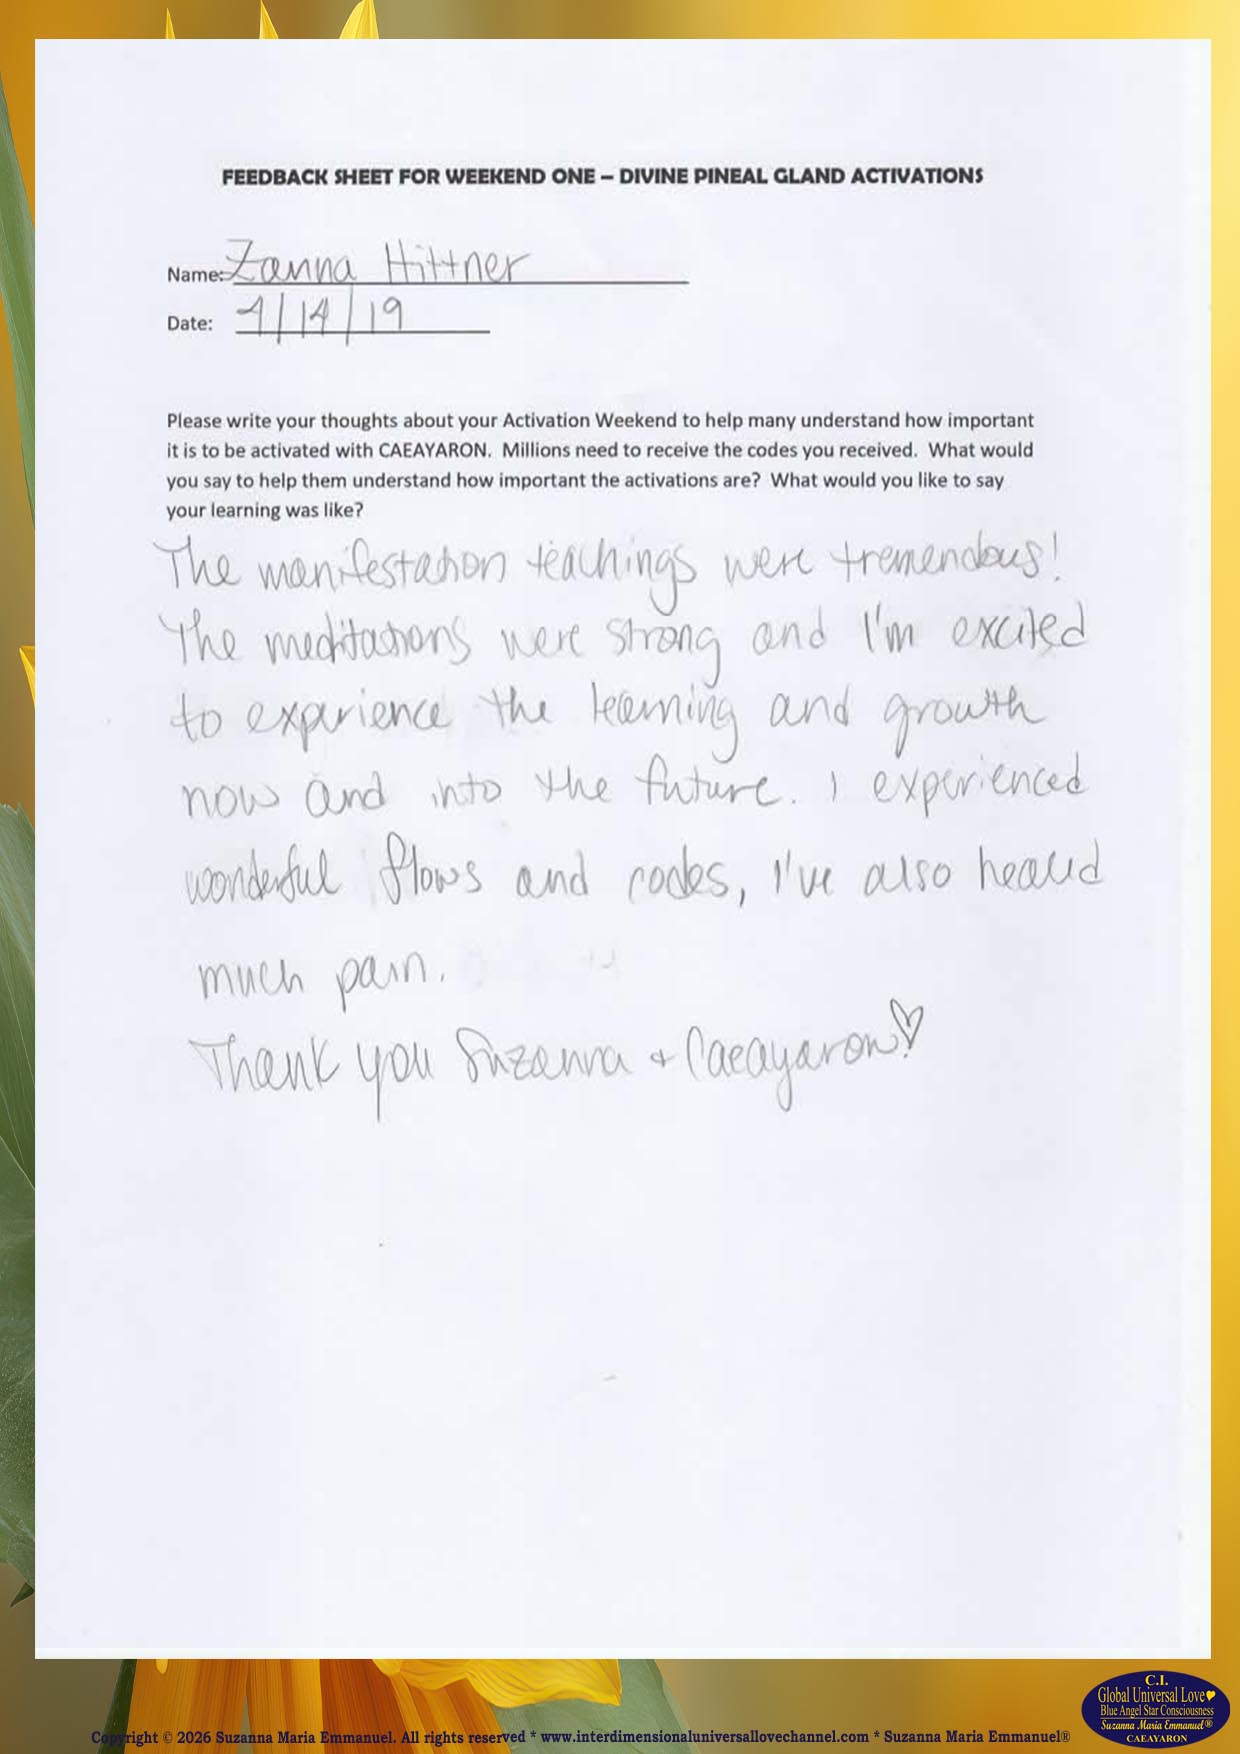 FEEDBACK SHEET FOR WEEKEND ONE – DIVINE PINEAL GLAND ACTIVATIONS
Name: Zanna Hittner
Date: 4/14/19
Please write your thoughts about your Activation Weekend to help many understand how important
it is to be activated with CAEAYARON.  Millions need to receive the codes you received.  What would
you say to help them understand how important the activations are?  What would you like to say
your learning was like?
The manifestation teachings were tremendous!
The meditations were strong and I'm excited
to experience the learning and growth
now and into the future. I experienced
wonderful flows and codes, I've also healed
much pain.
Thank you Suzanna + Caeayaron!
C.I.
Global Universal Love
Blue Angel Star Consciousness
Suzanna Maria Emmanuel®
CAEAYARON
Copyright © 2026 Suzanna Maria Emmanuel. All rights reserved * www.interdimensionaluniversallovechannel.com * Suzanna Maria Emmanuel®